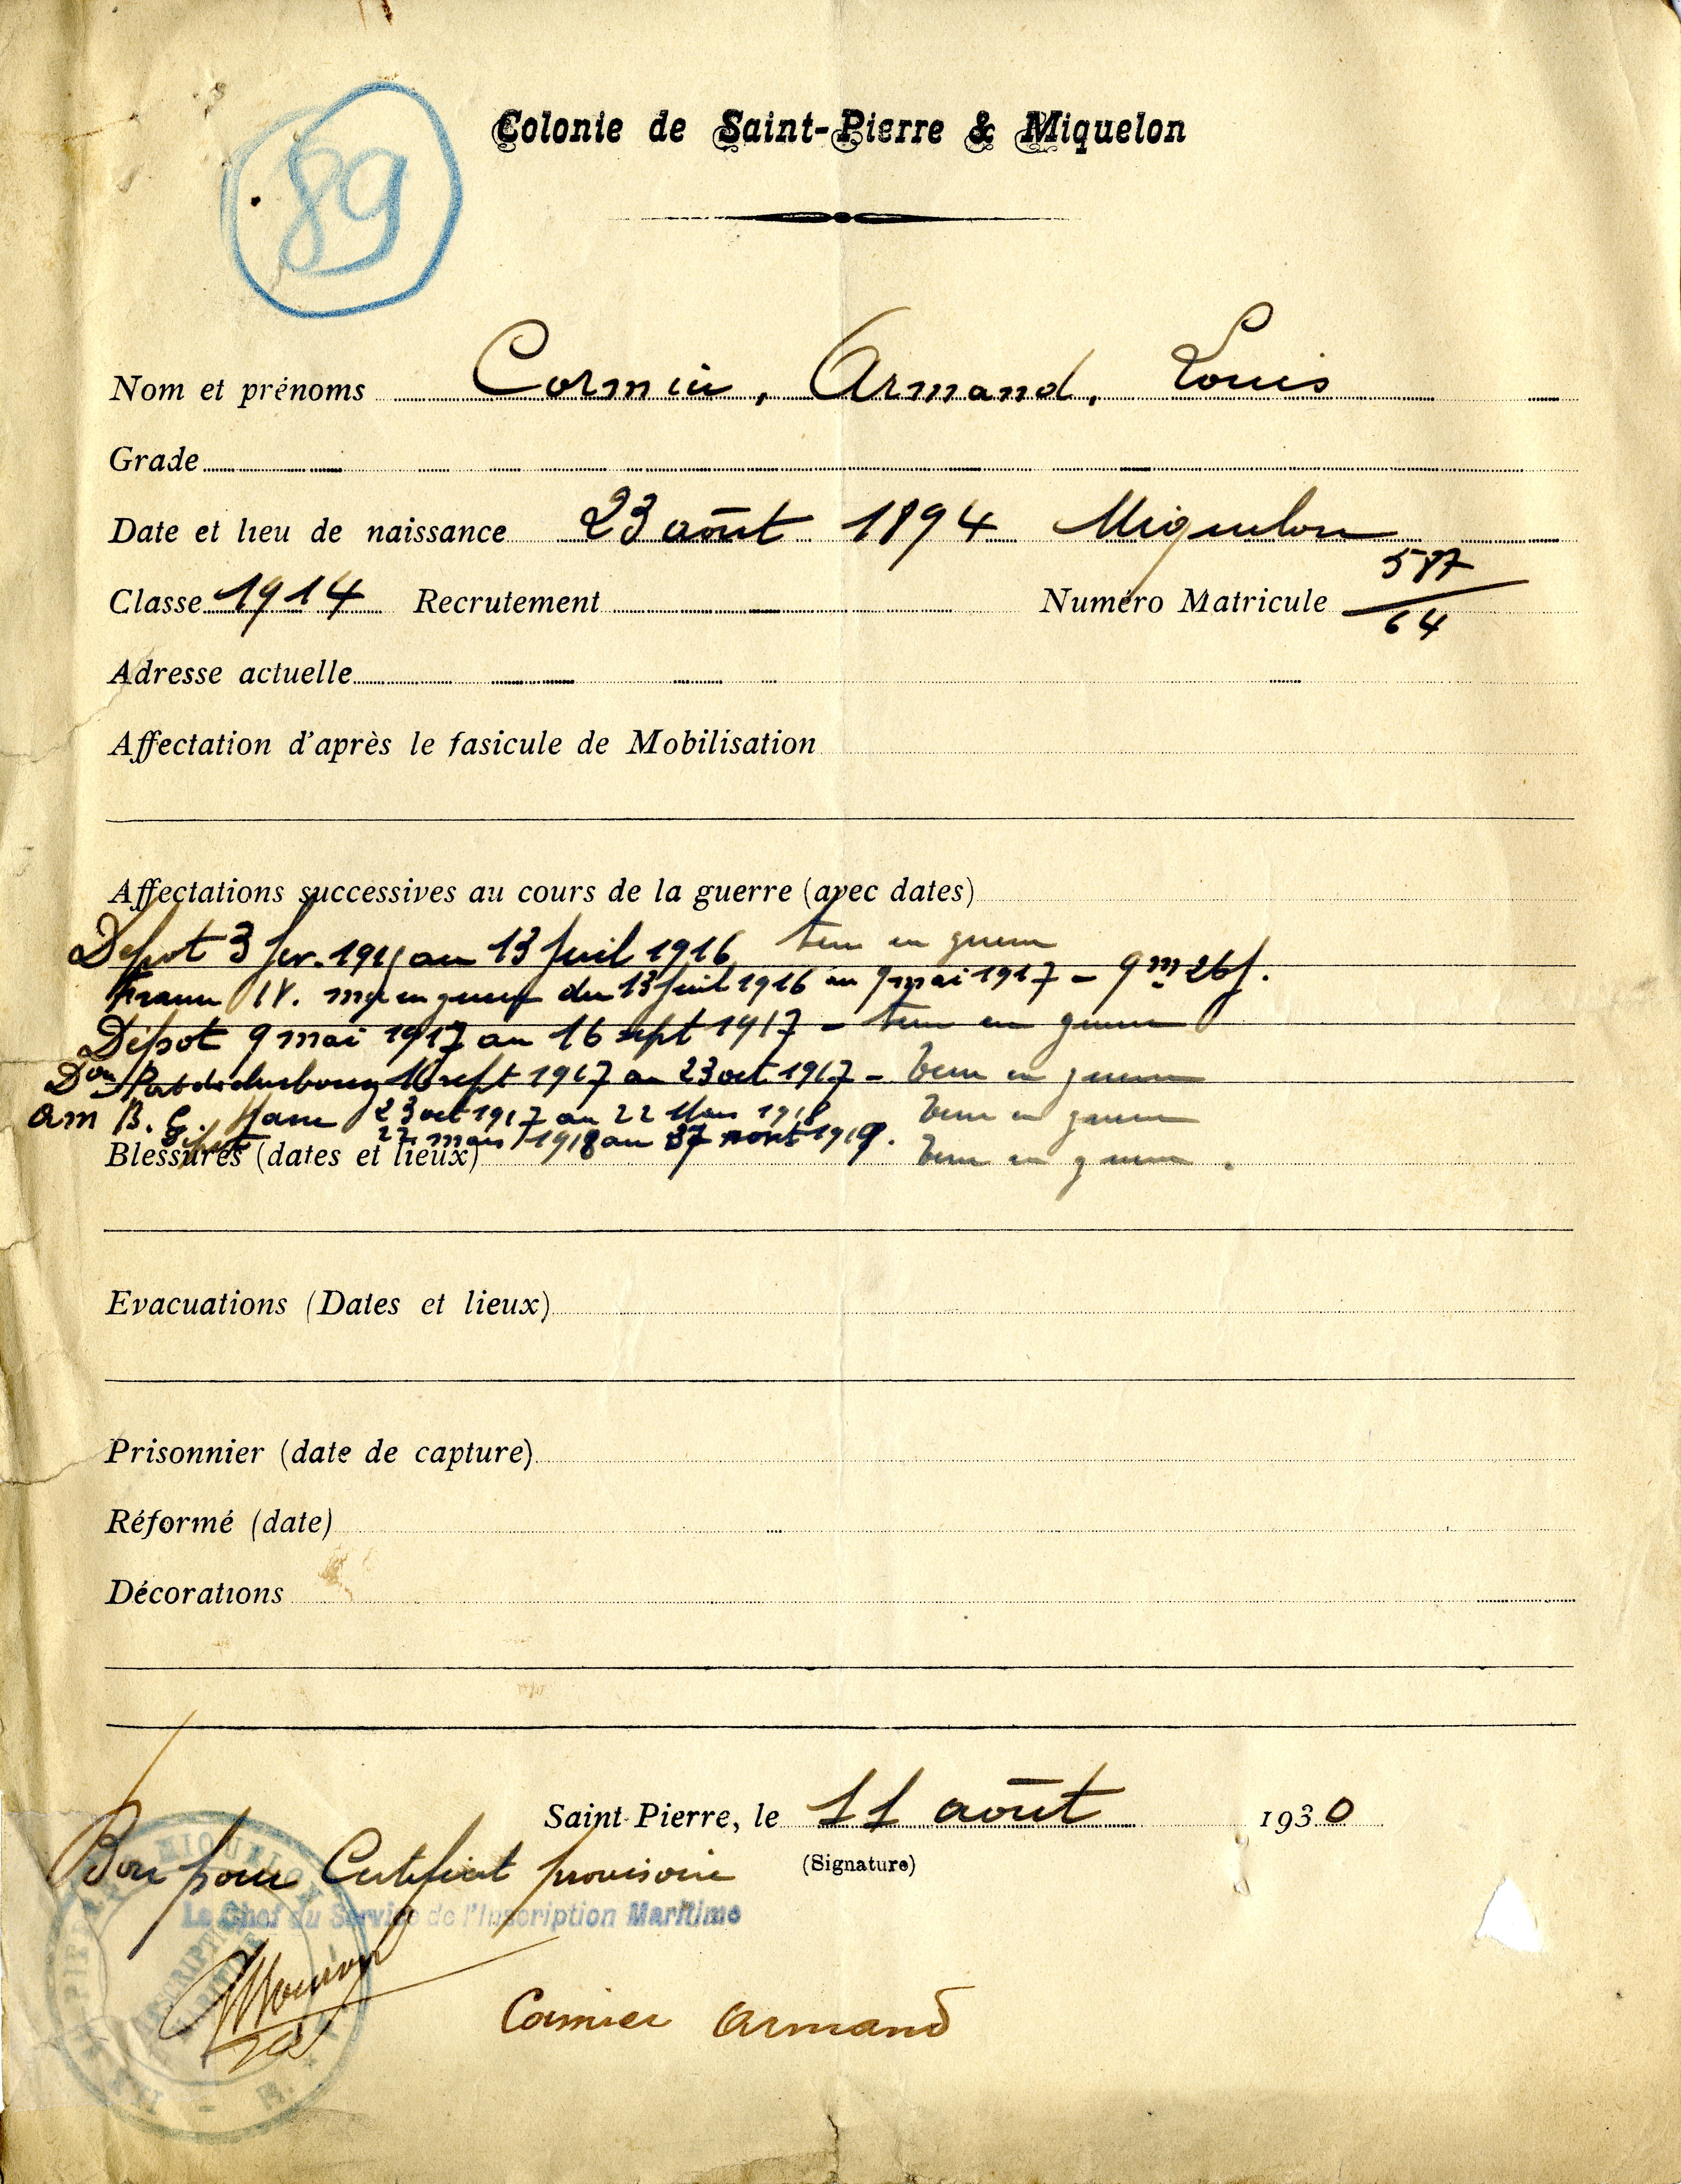 89
Colonie de Saint-Pierre & Miquelon
Nom et prénoms Cormier, Armand, Louis
Grade
Date et lieu de naissance 23 août 1894 Miquelon
Classe 1914 Recrutement Numéro Matricule 587/64
Adresse actuelle
Affectation d'après le fasicule de Mobilisation
Affectations successives au cours de la guerre (avec dates)
Dépot 3 fev. au 13 Juil 1916 terre en guerre
du 13 Juil 1916 au 9 mai 1917 - 9 m 26 j.
Dépot 9 mai 1917 au 16 sept 1917 - terre en guerre
16 sept 1917 au 23 oct. 1917 - terre en guerre
am B. G. 23 oct 1917 au 22 Mars 1918 terre en guerre
Dépot 22 mars 1918 au terre en guerre.
Blessures (dates et lieux)
Evacuations (Dates et lieux)
Prisonnier (date de capture)
Réformé (date)
Décorations
Saint-Pierre, le 11 août 1930
(Signature)
Bon pour Certificat provisoire
Le Chef du Service de l'Inscription Maritime
Cormier Armand